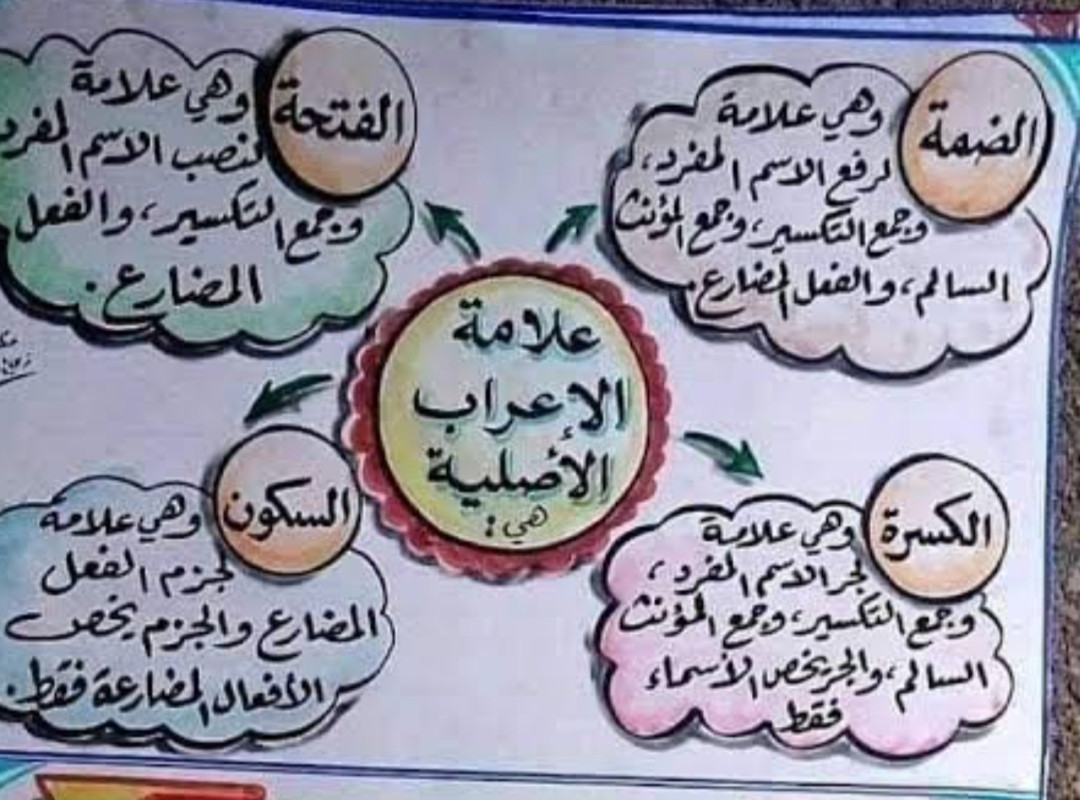 علامة
الإعراب
الأصلية
هي:
الضمة
وهي علامة
لرفع الاسم المفرد،
وجمع التكسير، وجمع المؤنث
السالم، والفعل المضارع.
الفتحة
وهي علامة
لنصب الاسم المفرد
وجمع التكسير، والفعل
المضارع.
الكسرة
وهي علامة
لجر الاسم المفرد،
وجمع التكسير، وجمع المؤنث
السالم، والجر يخص الأسماء
فقط
السكون
وهي علامة
لجزم الفعل
المضارع والجزم يخص
الأفعال المضارعة فقط.